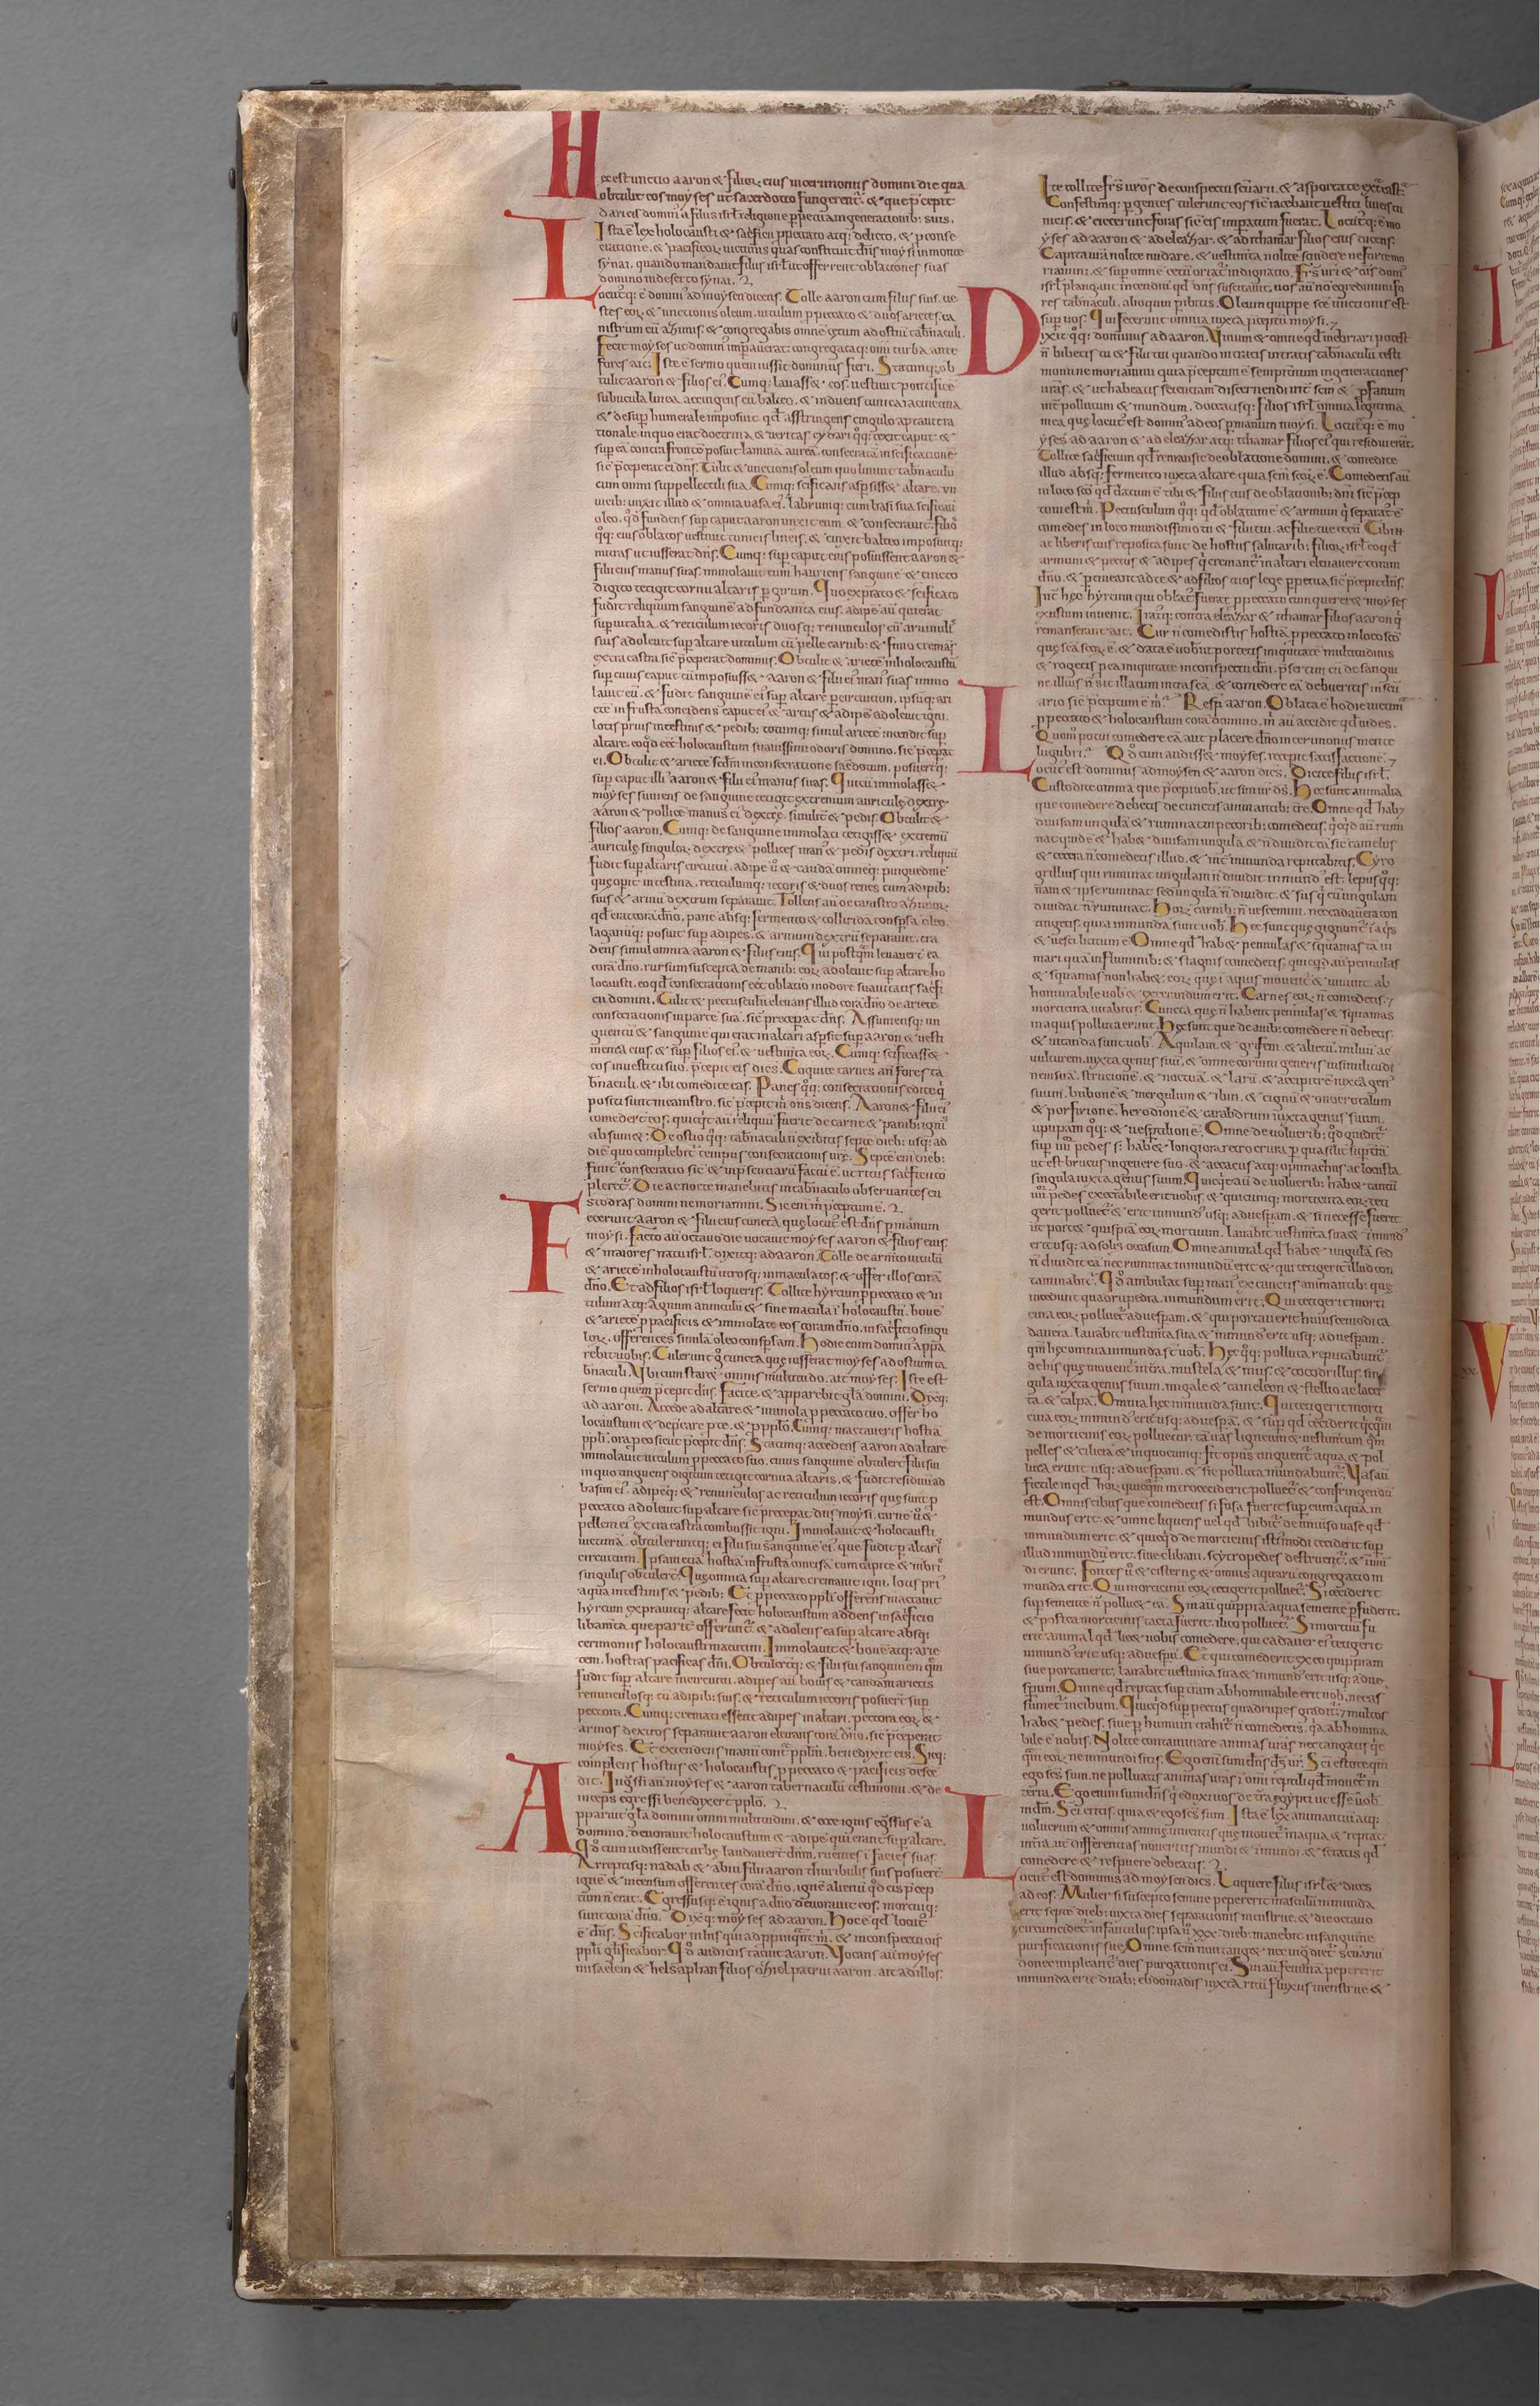 Hęc est unctio aaron & filioꝝ eius in cerimoniis domini die qua
obtulit eos moyses ut sacerdotio fungerent̃. & que p̃cepit
dari eis dominꝰ a filiis isrł religione ꝑpetua in generationib; suis.
Ista ẽ lex holocausti & sac̃ficii ꝓ peccato atq; delicto, & ꝓ conse
cratione, & pacificoꝝ uictimis quas constituit dñs moysi in monte
synai, quando mandauit filiis isrł ut offerrent oblationes suas
domino in deserto synai.
Locutꝰq; ẽ dominꝰ ad moysen dicens. Tolle aaron cum filiis suis, ue
stes eoꝝ & unctionis oleum, uitulum ꝓ peccato & duos arietes, ca
nistrum cũ azimis, & congregabis omnẽ cętum ad ostiũ tab̃naculi.
Fecit moyses ut dominꝰ imꝑauerat. congregataq; omi turba ante
fores ait. Iste ẽ sermo quem iussit dominus fieri. Statimq; ob
tulit aaron & filios eiꝰ. Cumq; lauass& eos, uestiuit pontificẽ
subucula linea, accingens eũ balteo, & induens tunica iacinctina
& desuꝑ humerale imposuit. qđ astringens cingulo aptauit ra
tionale in quo erat doctrina & ueritas. cydari qq; texit caput. &
suꝑ eã contra frontẽ posuit laminã aureã, consecratã in sc̃ificationẽ
sic̃ p̃ceperat ei dñs. Tulit & unctionis oleum quo liniuit tab̃naculũ
cum omni suppellectili sua. Cumq; sc̃ificans asꝑsiss& altare. vii
uicib; unxit illud & omnia uasa eiꝰ. labrumq; cum basi sua sc̃ificauit
oleo. qđ fundens suꝑ caput aaron unxit eum, & consecrauit. filios
qq; eius oblatos uestiuit tunicis lineis. & cinxit balteo imposuitq;
mitras ut iusserat dñs. Cumq; suꝑ caput eius posuissent aaron &
filii eius manus suas, immolauit eum hauriens sanguinẽ & tincto
digito tetigit cornu altaris ꝑ girum. Quo expiato & sc̃ificato
fudit reliquum sanguinẽ ad fundam̃ta eius. adipẽ aũ qui erat
suꝑ uitalia, & reticulum iecoris duosq; renunculos cũ aruinulis
suis adoleuit suꝑ altare uitulum cũ pelle carnib; & fimo cremans
extra castra sic̃ p̃ceperat dominus. Obtulit & arietẽ in holocaustũ
suꝑ cuius caput cũ imposuiss& aaron & filii eiꝰ manꝰ suas immo
lauit eũ. & fudit sanguinẽ eiꝰ suꝑ altare ꝑ circuitum. ipsũq; ari
etẽ in frusta concidens caput eiꝰ & artus & adipẽ adoleuit igni.
lotis prius intestinis & pedib; totumq; simul arietẽ incendit suꝑ
altare. eo qđ eẽt holocaustum suauissimi odoris domino. sic̃ p̃cepat
ei. Obtulit & arietẽ scđm in consecratione sac̃dotum. posuer̃tq;
suꝑ caput illiꝰ aaron & filii eiꝰ manus suas. Quẽ cũ immolass&
moyses sumens de sanguine tetigit extremum auriculę dextrę
aaron & pollicẽ manus eiꝰ dextrę. similit̃ & pedis. Obtulit &
filios aaron. Cumq; de sanguine immolati tetigiss& extremũ
auriculę singuloꝝ dextrę & pollices manꝰ & pedis dextri. reliquũ
fudit suꝑ altaris circuitũ. adipẽ ũo & caudã omnẽq; pinguedinẽ
quę oꝑit intestina. reticulumq; iecoris & duos renes cum adipib;
suis & armũ dextrum separauit. Tollens aũ de canistro azimoꝝ
qđ erat corã dño. panẽ absq; fermento & collyridã consꝑsã oleo.
laganũq; posuit suꝑ adipes. & armum dextrũ separauit. tra
dens simul omnia aaron & filiis eius. Qui postqm̃ leuauer̃t ea
corã dño. rursum suscepta de manib; eoꝝ adoleuit suꝑ altare ho
locausti. eo qđ consecrationis eẽt oblatio in odorẽ suauitatis sac̃fi
cii domini. Tulit & pectusculũ eleuans illud corã dño de ariete
consecrationis in partẽ suã. sic̃ preceperat dñs. Assumensq; un
guentũ & sanguinẽ qui erat in altari asꝑsit suꝑ aaron & uesti
menta eius. & suꝑ filios eiꝰ. & uestim̃ta eoꝝ. Cumq; sc̃ificass&
eos in uestitu suo. p̃cepit eis dicẽs. Coquite carnes añ fores ta
b̃naculi. & ibi comedite eas. Panes qq; consecrationis edite qi
positi sunt in canistro. sic̃ p̃cepit m̃ dñs dicens. Aaron & filii eiꝰ
comedent eos. quicqđ aũ reliquũ fuerit de carne & panib; ignis
absum&. De ostio qq; tab̃naculi ñ exibitis septẽ dieb; usq; ad
diẽ quo complebit̃ tempus consecrationis urẽ. Septẽ eni dieb;
finit̃ consecratio sic̃ & inp̃sentiarũ factũ ẽ. ut ritus sac̃ficii cõ
pleret̃. Die ac nocte manebitis in tab̃naculo obseruantes cu
stodias domini ne moriamini. Sic eni m̃ p̃ceptum ẽ.
Feceruit aaron & filii eius cuncta quę locut̃ est dñs ꝑ manum
moysi. Facto aũ octauo die uocauit moyses aaron & filios eius
& maiores natu isrł. dixitq; ad aaron. Tolle de armento uitulũ
& arietẽ in holocaustũ utrosq; inmaculatos. & offer illos corã
dño. Et ad filios isrł loqueris. Tollite hyrcum ꝓ peccato & ui
tulum atq; agnum anniculũ & sine macula ĩ holocaustũ. bouẽ
& arietẽ ꝓ pacificis & immolate eos coram dño. in sac̃ficio singu
loꝝ. offerentes similã oleo consꝑsam. Hodie enim dominꝰ appa
rebit uobis. Tulerunt g̊ cuncta quę iusserat moyses ad ostium ta
b̃naculi. Vbi cum star& omnis multitudo. ait moyses. Iste est
sermo quem p̃cepit dñs. Facite. & apparebit gła domini. Dixitq;
ad aaron. Accede ad altare & immola ꝓ peccato tuo. offer ho
locaustum & deprcare ꝓ te. & ꝓ pplõ. Cumq; mactaueris hostiã
ppli. ora ꝓ eo sicut p̃cepit dñs. Statimq; accedens aaron ad altare
immolauit uitulum ꝓ peccato suo. cuius sanguinẽ obtuler̃t filii sui
in quo tinguens digitum tetigit cornua altaris. & fudit residuũ ad
basim eiꝰ. adipẽq; & renunculos ac reticulum iecoris quę sunt ꝓ
peccato adoleuit suꝑ altare sic̃ preceperat dñs moysi. carnẽ ũo &
pellem eiꝰ extra castra combussit igni. Immolauit & holocausti
uictimã. obtuleruntq; ei filii sui sanguinẽ eiꝰ. que fudit ꝑ altaris
circuitum. Ipsam etiã hostiã in frusta concisã cum capite & mẽbris
singulis obtuler̃t. Quę omnia suꝑ altare cremauit igni. lotis priꝰ
aqua intestinis & pedib; Et ꝓ peccato ppli offerens mactauit
hyrcum. expiatoq; altare fecit holocaustum addens in sac̃ficio
libam̃ta. que parit̃ offerunt̃. & adolens ea suꝑ altare absq;
cerimoniis holocausti matutini. Immolauit & bouẽ atq; arie
tem. hostias pacificas ppli. Obtuler̃tq; ei filii sui sanguinem. quẽ
fudit suꝑ altare in circuitũ. adipes aũ bouis & caudam arietis
renunculosq; cũ adipib; suis. & reticulum iecoris posuer̃t suꝑ
pectora. Cumq; cremati essent adipes in altari. pectora eoꝝ &
armos dextros separauit aaron eleuans corã dño. sic̃ p̃ceperat
moyses. Et extendens manũ cont̃ pplm̃. benedixit eis. Sicq;
complens hostias & holocaustis ꝓ peccato & pacificis desc̃
dit. Ingressi aũ moyses & aaron tabernaculũ testimonii. & de
inceps egressi benedixer̃t pplo.
Apparuit gła domini omni multitudini. & ecce ignis egressus ẽ a
domino. deuorauit holocaustum & adipes qui erant suꝑ altare.
Qđ cum uidissent turbę. laudauer̃t dnm̃. ruentes ĩ facies suas.
Arreptisq; nadab & abiu filii aaron thuribulis suis posuer̃t
ignẽ & incensum offerentes corã dño. ignẽ alienũ qđ eis p̃cep
tum ñ erat. Egressusq; ẽ ignis a dño deuorauit eos. mortuiq;
sunt corã dño. Dixitq; moyses ad aaron. Hoc ẽ qđ locut̃
ẽ dñs. Sc̃ificabor in his qui appropinqnt̃ m̃. & in conspectu ois
ppli głificabor. Qđ audiens tacuit aaron. Vocans aũ moyses
misaelem & helsaphan filios ozihel patrui aaron. ait ad illos.
Ite tollite fr̃s ur̃os de conspectu sc̃uarii. & asportate extra castra.
Confestimq; ꝑgentes tulerunt eos sic̃ iacebant uestiti lineis tu
nicis. & eiecerunt foras sic̃ eis imꝑatum fuerat. Locutꝰq; ẽ mo
yses ad aaron & ad eleazar. & ad ithamar filios eius dicens.
Capita ur̃a nolite nudare. & uestim̃ta nolite scindere ne forte mo
riamini. & suꝑ omnẽ cętũ oriat̃ indignatio. Fr̃s ur̃i & oĩs domꝰ
isrł plangant incendiũ qđ dñs suscitauit. uos aũ nõ egrediemini fo
res tab̃naculi. alioquin ꝑibitis. Oleum quippe sc̃ę unctionis est
suꝑ uos. Qui fecerunt omnia iuxta p̃ceptũ moysi.
Dixit qq; dominus ad aaron. Vinum & omne qđ inebriari potest
ñ bibetis tu & filii tui quando intratis in tab̃naculũ testi
monii ne moriamini quia p̃ceptum ẽ sempitnum in generationes
ur̃as. & ut habeatis scientiam discernendi int̃ sc̃m & ꝓfanum
int̃ pollutum & mundum. doceatisq; filios isrł omnia legitima
mea quę locut̃ est dominꝰ ad eos ꝑ manum moysi. Locutꝰq; ẽ mo
yses ad aaron & ad eleazar atq; ithamar filios eiꝰ qui residui erant.
Tollite sac̃ficium qđ remansit de oblatione domini. & comedite
illud absq; fermento iuxta altare quia sc̃m sc̃oꝝ ẽ. Comedetis aũ
in loco sc̃o qđ datum ẽ tibi & filiis tuis de oblationib; dñi sic̃ p̃cep
tum est m̃. Pectusculum qq; qđ oblatum ẽ & armum qi separatꝰ ẽ
comedes in loco mundissimo tu & filii tui. ac filię tuę tecũ. Tibi eni
ac liberis tuis reposita sunt de hostiis salutarib; filioꝝ isrł. eo qđ
armum & pectus & adipes qi cremant̃ in altari eleuauer̃t coram
dño. & ꝑtineant ad te & ad filios tuos lege ꝑpetua sic̃ p̃cepit dñs.
Int̃ hęc hyrcum qui oblatꝰ fuerat ꝓ peccato cum querer& moyses
exustum inuenit. Iratꝰq; contra eleazar & ithamar filios aaron qi
remanserant ait. Cur ñ comedistis hostiã ꝓ peccato in loco sc̃o
quę sc̃a sc̃oꝝ ẽ. & data ẽ uob̃ ut portetis iniquitatẽ multitudinis
& rogetis ꝓ ea iniquitate in conspectu dñi. p̃sertim cũ de sangui
ne illius ñ sit illatum intra sc̃a. & comedere eã debueritis in sc̃u
ario sic̃ p̃ceptum ẽ m̃. Resꝑ aaron. Oblata ẽ hodie uictima
ꝓ peccato & holocaustum corã domino. m̃ aũ accidit qđ uides.
Quom̃ potui comedere eã aut placere dño in cerimoniis mente
lugubri. Qđ cum audiss& moyses. recepit satisfactionẽ.
Locut̃ est dominus ad moysen & aaron dicẽs. Dicite filiis isrł.
Custodite omnia que p̃cepi uob̃. ut sim ur̃ ds̃. Hec sunt animalia
que comedere debetis de cunctis animantib; tr̃e. Omne qđ hab&
diuisam ungulã & ruminat in pecorib; comedetis. qicqđ aũ rumi
nat quidẽ & hab& diuisam ungulã & ñ diuidit eã sic̃ camelus
& cetera ñ comedetis illud. & int̃ inmunda reputabitis. Cyro
grillius qui ruminat ungulam ñ diuidit inmundꝰ est. lepus qq;
nam & ipse ruminat sed ungulã ñ diuidit. & sus qi cũ ungulam
diuidat ñ ruminat. Hoꝝ carnib; ñ uescemini. nec cadauera con
tingetis. quia inmunda sunt uob̃. Hec sunt quę gignunt̃ ĩ aqis
& uesci licitum ẽ. Omne qđ hab& pennulas & squamas tã in
mari quã in fluminib; & stagnis comedetis. quicqđ aũ pennulas
& squamas non hab& eoꝝ quę ĩ aquis mouent̃ & uiuunt. ab
hominabile uob̃ & execrandum erit. Carnes eoꝝ ñ comedetis. &
morticina uitabitis. Cuncta quę ñ habent pennulas & squamas
in aquis polluta erunt. Hęc sunt que de auib; comedere ñ debetis.
& uitanda sunt uob̃. Aquilam. & grifem. & alietũ. miluũ ac
uulturem. iuxta genus suũ. & omne coruini generis in similitudi
nem suã. strucionẽ. & noctuã. & larũ. & accipitrẽ iuxta genꝰ
suum. bubonẽ & mergulum & ibin. & cignũ & onocrotalum
& porfirionẽ. herodionẽ & caradrion iuxta genus suum.
upupam qq; & uesꝑtilionẽ. Omne de uolucrib; qđ gradit̃
suꝑ iiii pedes s; hab& longiora retro crura ꝑ quę salit suꝑ terrã
ut est brucus in genere suo. & attacus atq; opimachus ac locusta
singula iuxta genus suum. Quicqđ aũ de uolucrib; hab& tantũ
iiii pedes execrabile erit uobis. & quicumq; morticina eoꝝ teti
gerit polluet̃. & erit inmundꝰ usq; ad uesꝑam. & si necesse fuerit
ut port& quispiã eoꝝ mortuum. lauabit uestim̃ta sua & inmundꝰ
erit usq; ad solis occasum. Omne animal qđ hab& ungulã sed
ñ diuidit eã nec ruminat inmundũ erit. & qui tetigerit illud con
taminabit̃. Qđ ambulat suꝑ manꝰ ex cunctis animantib; quę
incedunt quadrupedia. inmundum erit. Qui tetigerit morti
cina eoꝝ polluet̃ ad uesꝑam. & qui portauerit huiuscemodi ca
dauera. lauabit uestim̃ta sua & inmundꝰ erit usq; ad uesꝑam.
qm̃ hęc omnia inmunda st̃ uob̃. Hęc qq; polluta reputabunt̃
de his quę mouent̃ in tr̃a. mustela & mus. & cocodrillus. sin
gula iuxta genus suum. migale & cameleon & stellio ac lacer
ta. & talpa. Omnia hęc inmunda sunt. Qui tetigerit morti
cina eoꝝ inmundꝰ erit usq; ad uesꝑã. & suꝑ qđ ceciderit qicqm̃
de morticinis eoꝝ polluetur. tã uas ligneum & uestim̃tum qm̃
pelles & cilicia & in quocumq; fit opus tinguent̃ aqua & pol
luta erunt usq; ad uesꝑam. & sic polluta mundabunt̃. Vas aũ
fictile in qđ hoꝝ quicqm̃ intro ceciderit polluet̃ & confringendũ
est. Omnis cibus que comedetis si fusa fuerit suꝑ eum aqua in
mundus erit. & omne liquens uel qđ bibit̃ de uniũso uase qđ
inmundum erit. & quicqđ de morticinis istimodi ceciderit suꝑ
illud inmundũ erit. siue clibani. siue cytropedes destruent̃. & inmũ
di erunt. Fontes ũo & cisternę & omnis aquarũ congregatio m
munda erit. Qui morticinũ eoꝝ tetigerit polluet̃. Si ceciderit
suꝑ sementẽ ñ pollu& eã. Sin aũ quippiã aqua sementẽ ꝑfuderit.
& postea morticinis tacta fuerit. ilico polluet̃. Si mortuũ fu
erit animal qđ lic& uobis comedere. qui cadauer eiꝰ tetigerit
inmundꝰ erit usq; ad uesꝑũ. Et qui comederit ex eo quippiam
siue portauerit. lauabit uestim̃ta sua & inmundꝰ erit usq; ad ue
sꝑum. Omne qđ reptat suꝑ tr̃am abhominabile erit uob̃. nec as
sumet̃ in cibum. Quicqđ suꝑ pectus quadrupes gradit̃. & multos
hab& pedes. siue ꝑ humum trahit̃ ñ comedetis. qia abhomina
bile ẽ uobis. Nolite contaminare animas ur̃as nec tangatis qiđ
qm̃ eoꝝ. ne inmundi sitis. Ego eni sum dñs ds̃ ur̃. Sc̃i estote qm̃
ego sc̃s sum. ne polluatis animas ur̃as ĩ omi reptili qđ mouet̃ in
terra. Ego enim sum dñs qi eduxi uos de tr̃a egypti ut esse uob̃
in dm̃. Sc̃i eritis. quia & ego sc̃s sum. Ista ẽ lex animantiũ atq;
uolucrum & omnis animę uiuentis quę mouet̃ in aqua & reptat
in tr̃a. ut differentias noueritis mundi & inmundi. & sciatis qđ
comedere & respuere debeatis.
Locut̃ est dominus ad moysen dicẽs. Loquere filiis isrł & dices
ad eos. Mulier si suscepto semine pepererit masculũ inmunda
erit septẽ dieb; iuxta dies separationis menstruę. & die octauo
circumcidet̃ infantulus. ipsa ũo xxxiii dieb; manebit in sanguine
purificationis suę. Omne sc̃m non tang& nec ingrediet̃ sc̃uariũ
donec impleant̃ dies purgationis eiꝰ. Sin aũ feminã pepererit
inmunda erit duab; ebdomadis iuxta ritũ fluxus menstrui &